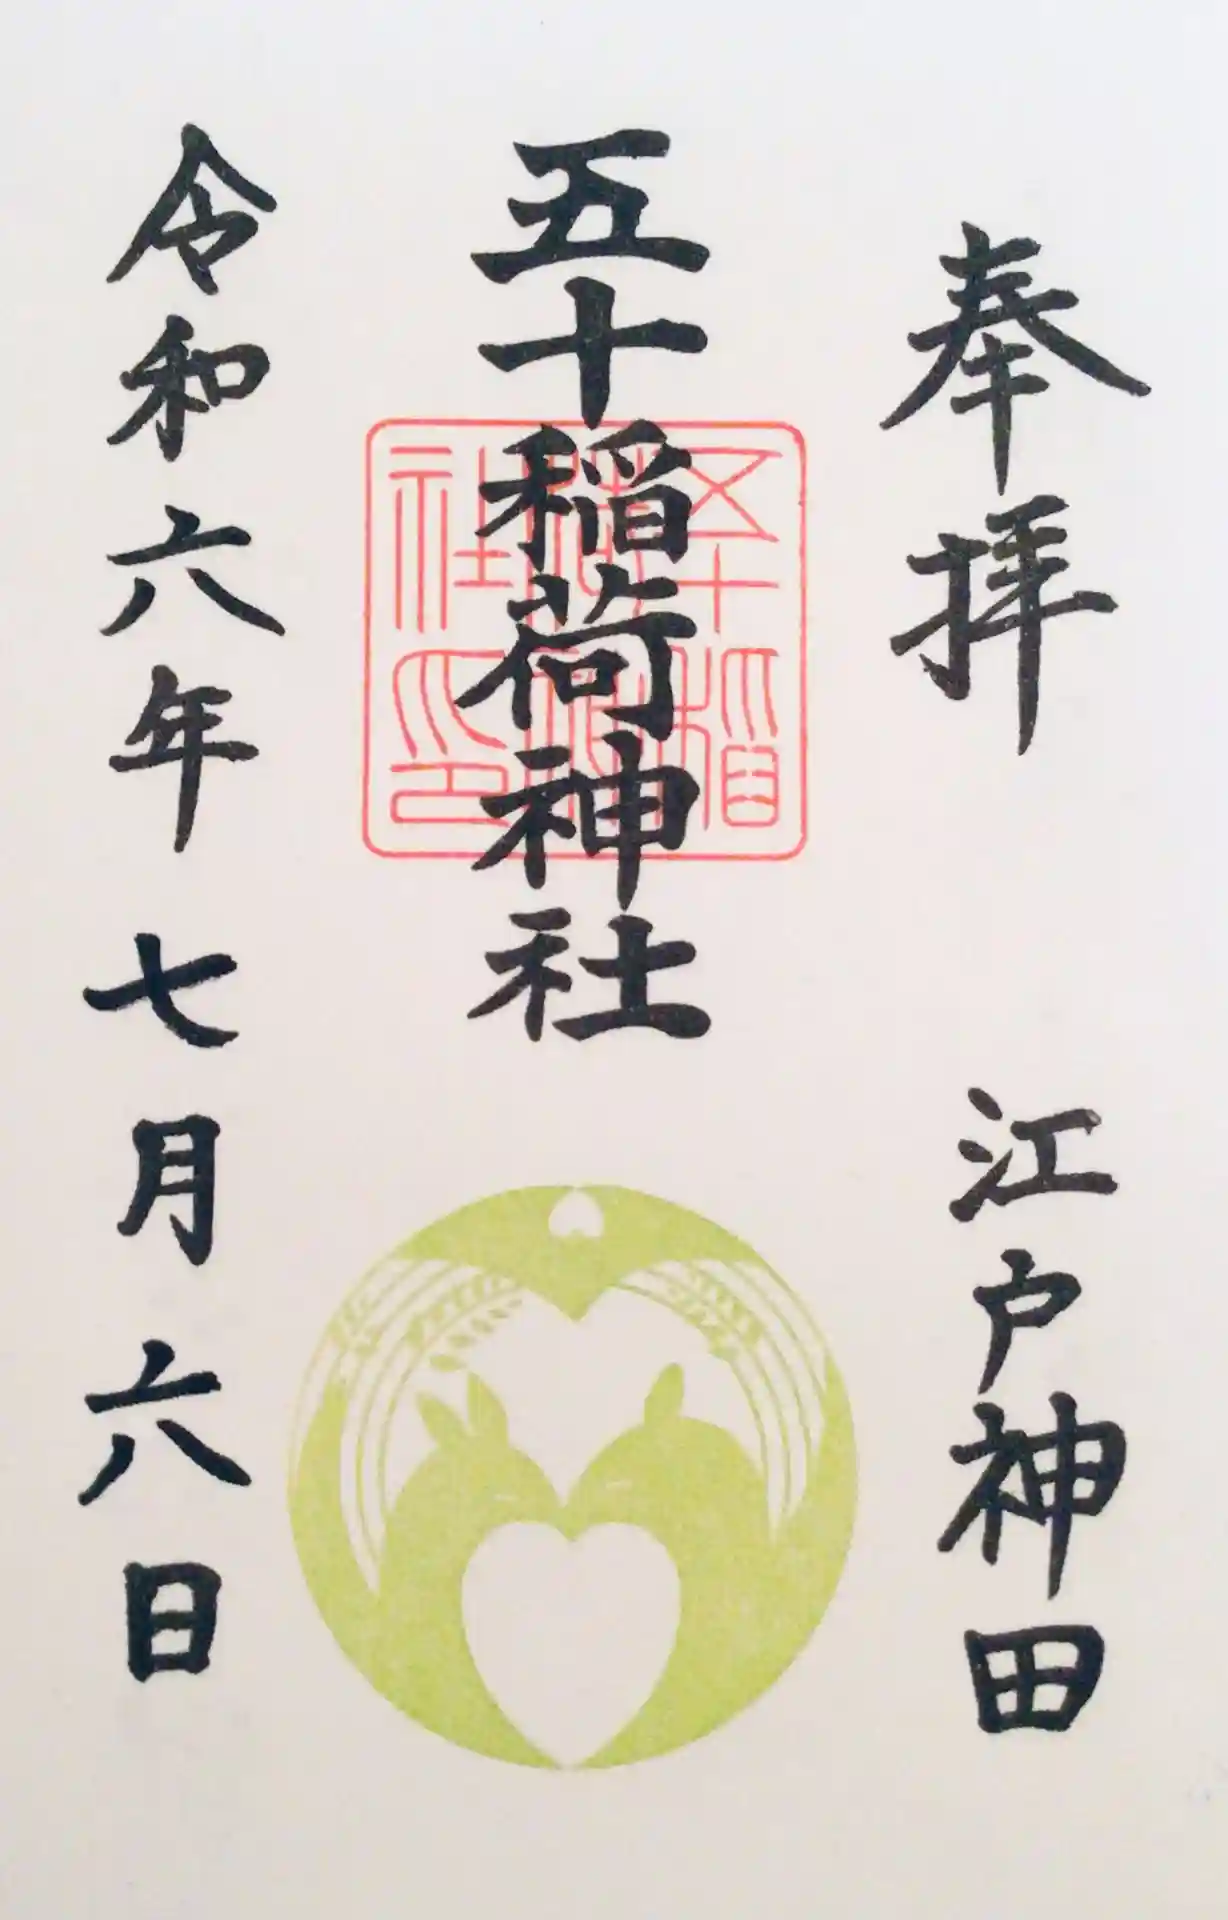 奉拝 江戸神田
五十稲荷神社
五十稲荷神社印
令和六年 七月六日